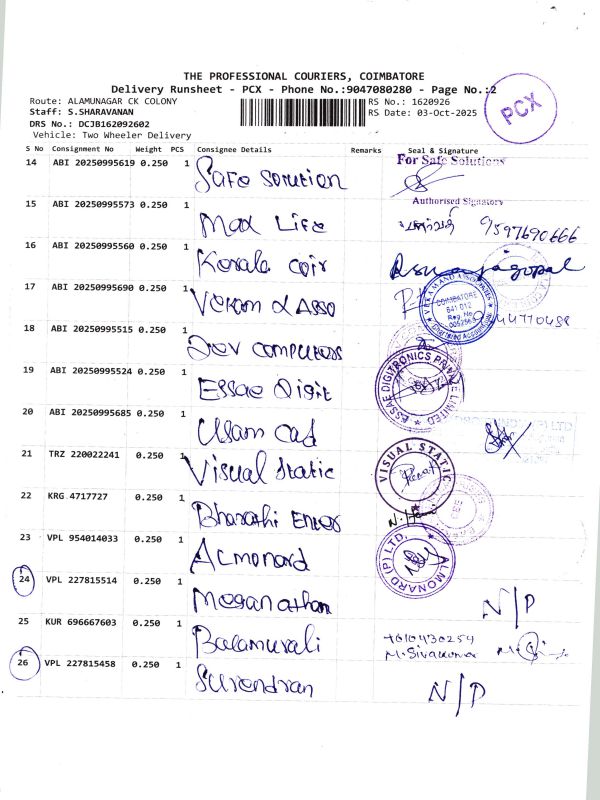 THE PROFESSIONAL COURIERS, COIMBATORE
Delivery Runsheet - PCX - Phone No.:9047080280 - Page No.:2
PCX
Route: ALAMUNAGAR CK COLONY
RS No.: 1620926
Staff: S.SHARAVANAN
RS Date: 03-Oct-2025
DRS No.: DCJB162092602
Vehicle: Two Wheeler Delivery
S No Consignment No Weight PCS Consignee Details Remarks Seal & Signature
14 ABI 20250995619 0.250 1 Safe Sorution For Safe Solutions
Authorised Signatory
15 ABI 20250995573 0.250 1 Max Life 9597690666
16 ABI 20250995560 0.250 1 Kerala coir
17 ABI 20250995690 0.250 1 Vekam & Asso
COIMBATORE 641 012 Reg. No Chartered Accountants
18 ABI 20250995515 0.250 1 Dev computers
19 ABI 20250995524 0.250 1 Essae Digit ESSAE DIGITRONICS PRIVATE LIMITED
20 ABI 20250995685 0.250 1 Usam Cad
21 TRZ 220022241 0.250 1 Visual Static VISUAL STATIC
22 KRG 4717727 0.250 1 Bharathi Enter
23 VPL 954014033 0.250 1 Almonard ALMONARD (P) LTD.
24 VPL 227815514 0.250 1 Moganathan N/P
25 KUR 696667603 0.250 1 Balamurali M. Sivakumar
26 VPL 227815458 0.250 1 Surendran N/P